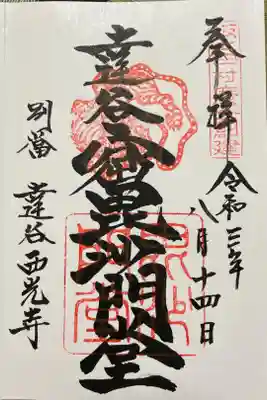 奉拝
令和三年
八月十四日
達谷窟毘沙門堂
別當
達谷西光寺